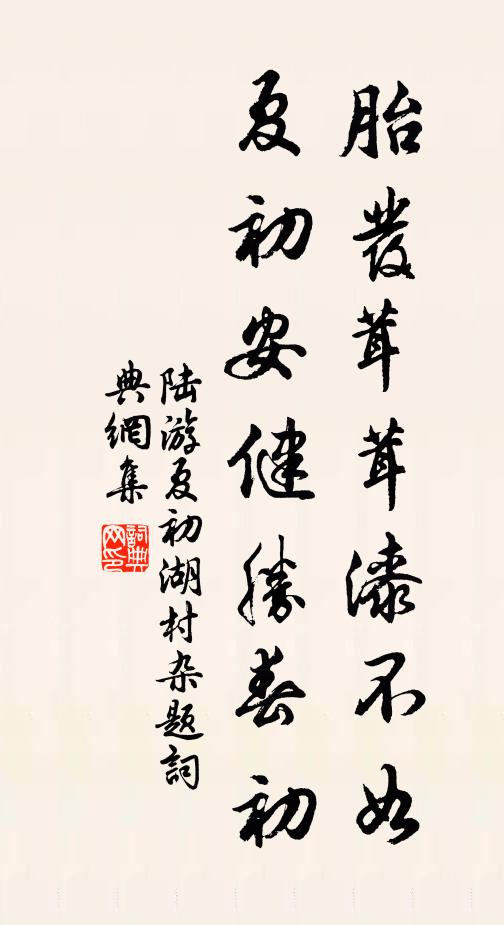 胎發茸茸漆不如
夏初安健勝春初
陆游夏初湖村杂题詞
典網集
詞典
网印